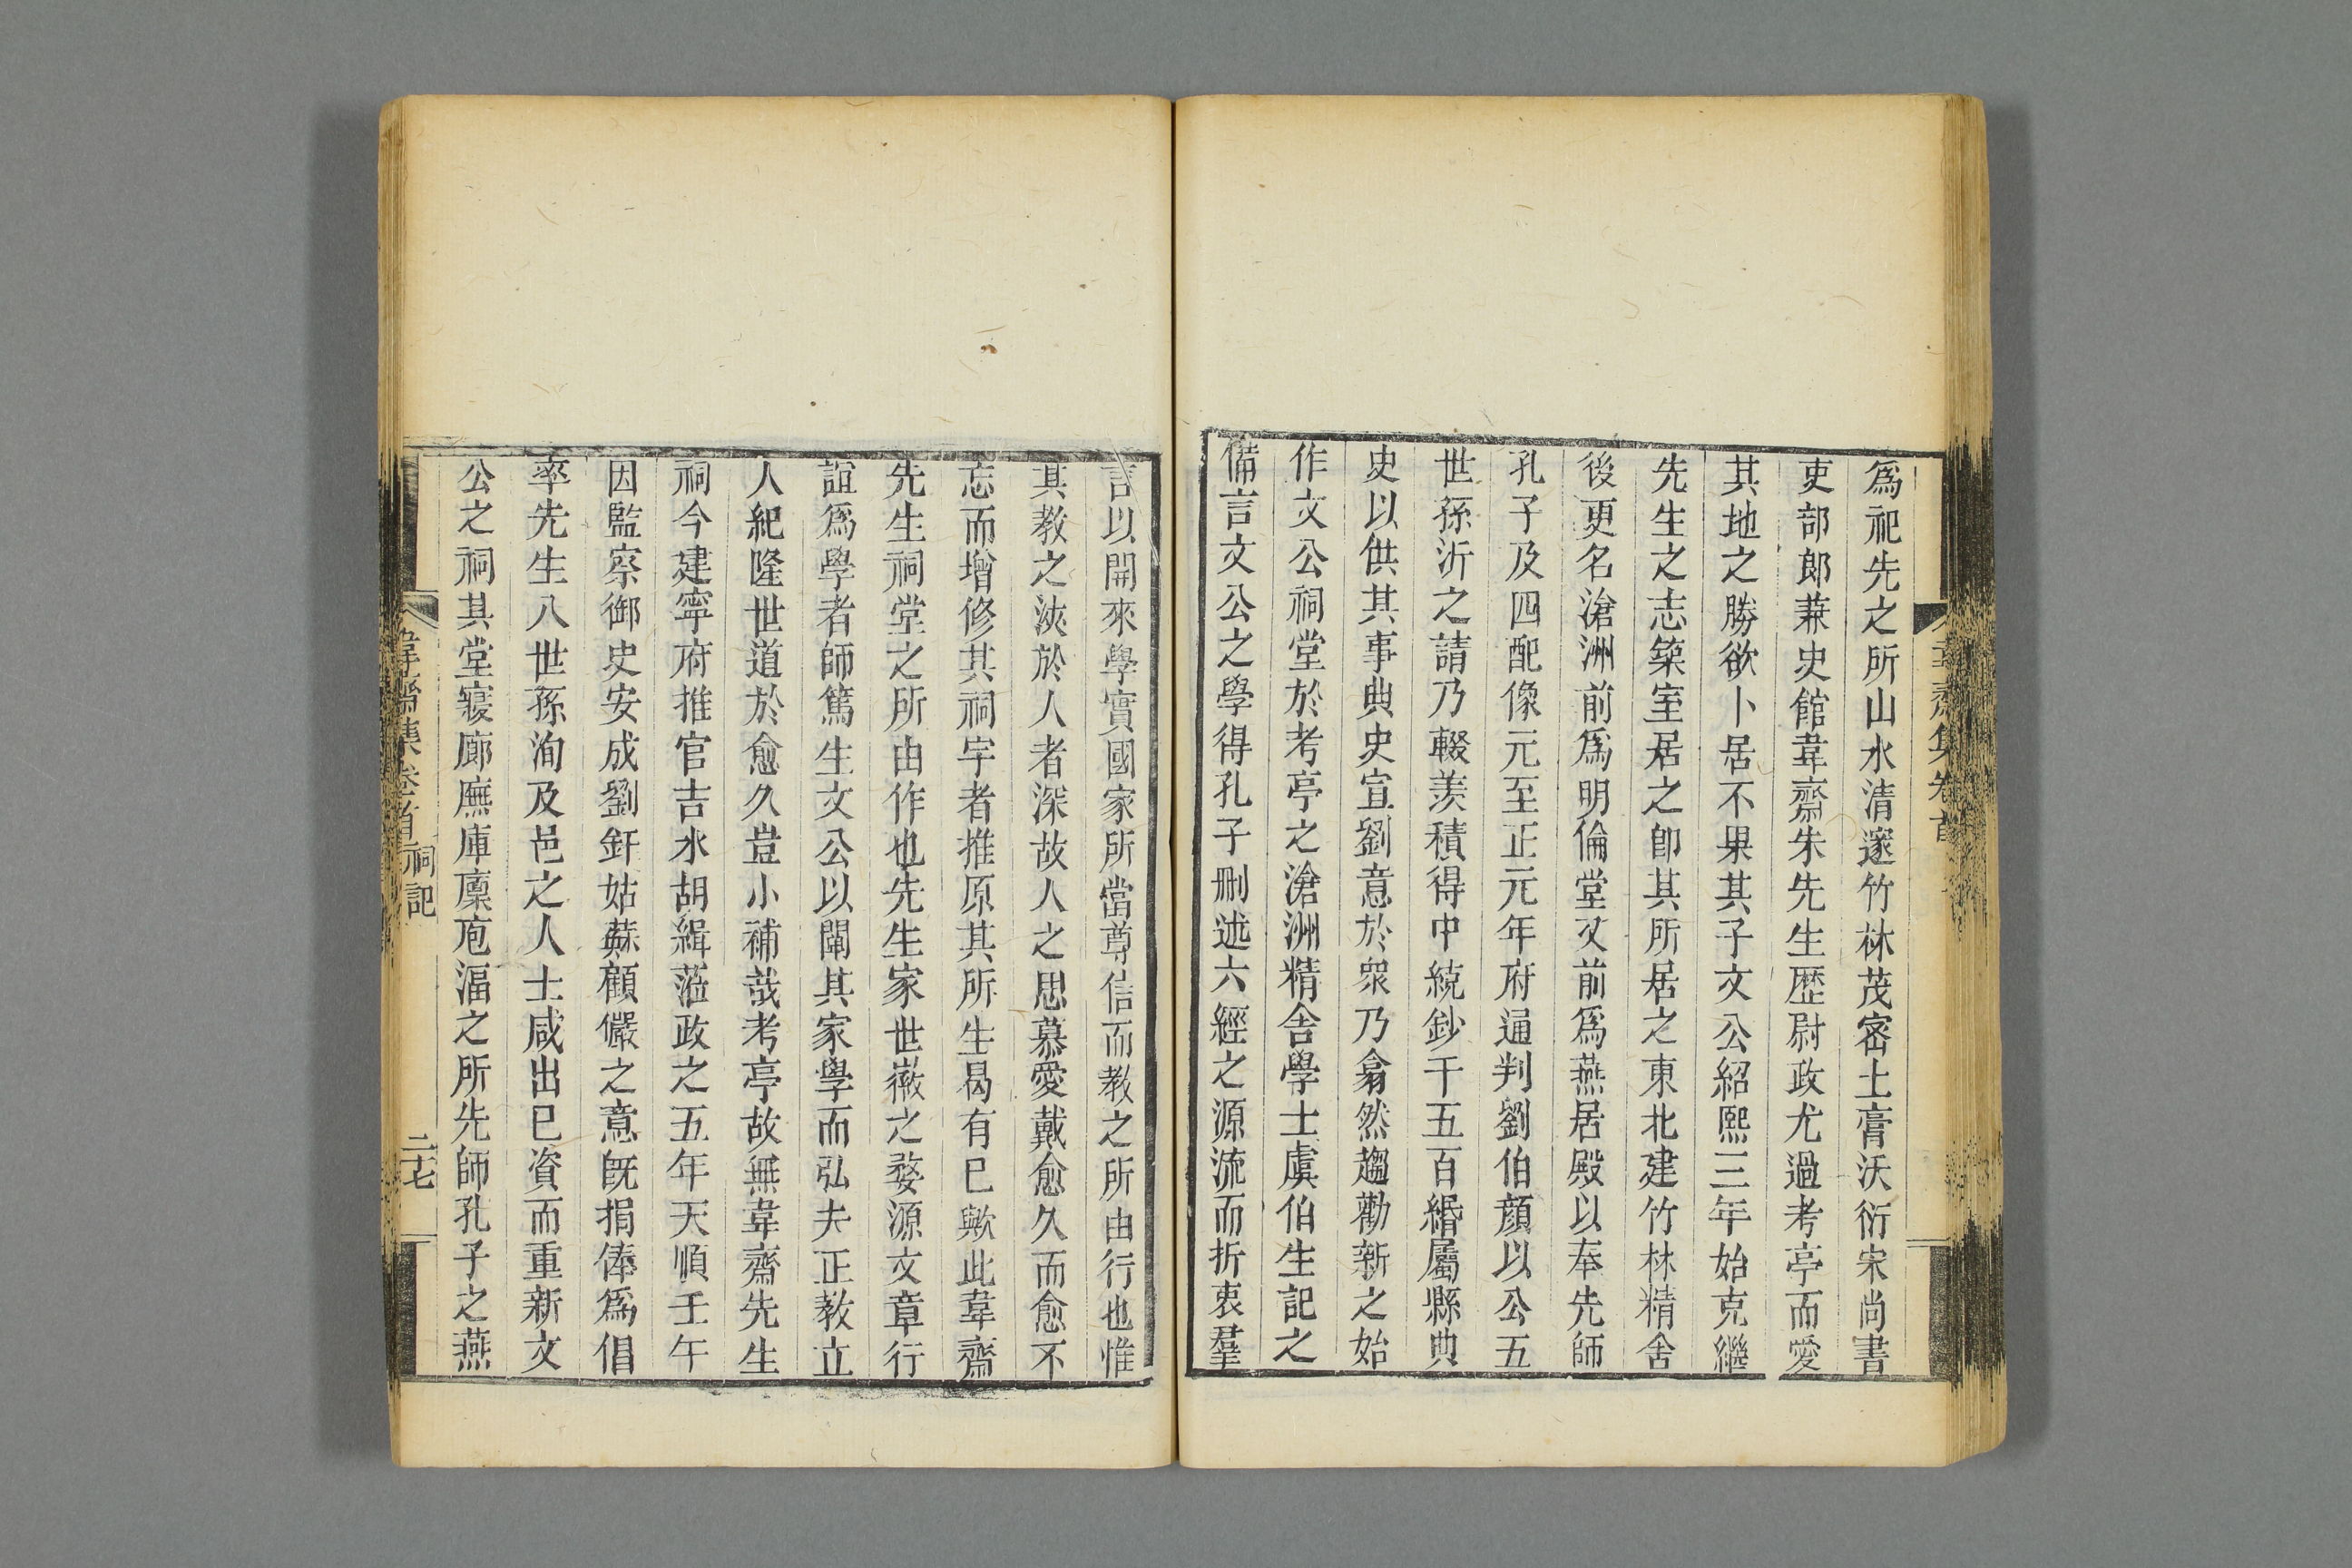 韋齋集卷首
爲祀先之所山水清邃竹林茂密土膏沃衍宋尚書
吏部郎兼史館韋齋朱先生歷尉政尤過考亭而愛
其地之勝欲卜居不果其子文公紹熙三年始克繼
先生之志築室居之卽其所居之東北建竹林精舍
後更名滄洲前爲明倫堂又前爲燕居殿以奉先師
孔子及四配像元至正元年府通判劉伯顔以公五
世孫沂之請乃輟羨積得中統鈔千五百緡屬縣典
史以供其事典史宣劉意於衆乃翕然趨勸新之始
作文公祠堂於考亭之滄洲精舍學士虞伯生記之
備言文公之學得孔子刪述六經之源流而折衷羣
言以開來學實國家所當尊信而教之所由行也惟
其教之浹於人者深故人之思慕愛戴愈久而愈不
忘而增修其祠宇者推原其所生曷有已歟此韋齋
先生祠堂之所由作也先生家世徽之婺源文章行
誼爲學者師篤生文公以闡其家學而弘夫正教立
人紀隆世道於愈久豈小補哉考亭故無韋齋先生
祠今建寧府推官吉水胡緝蒞政之五年天順壬午
因監察御史安成劉釪姑蘇顧儼之意旣捐俸爲倡
率先生八世孫洵及邑之人士咸出已資而重新文
公之祠其堂寢廊廡庫廩庖湢之所先師孔子之燕
韋齋集卷首 祠記 二七